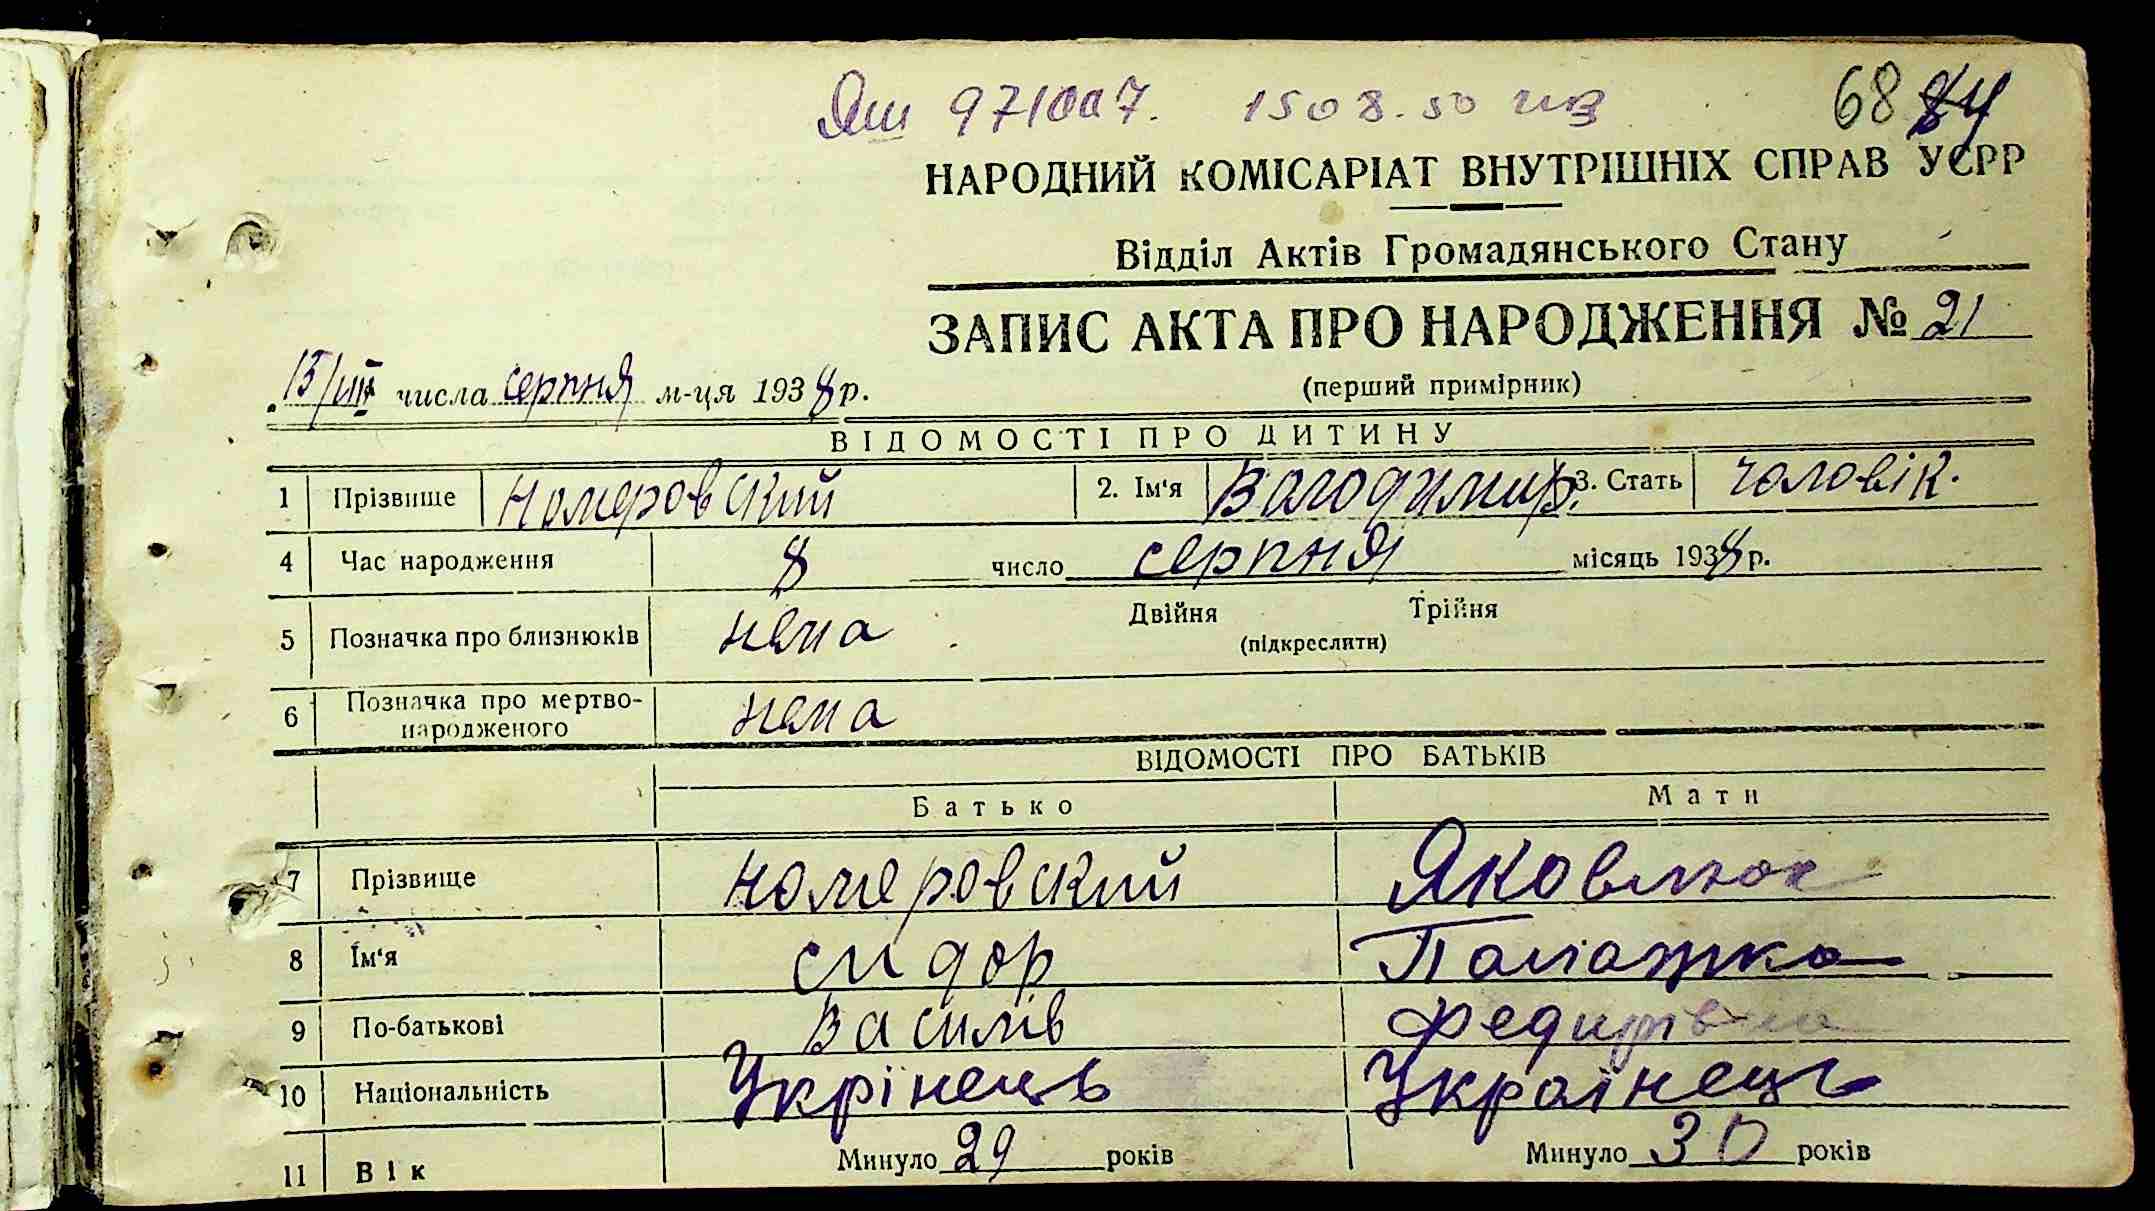 971007. 1508.50
68 84
НАРОДНИЙ КОМІСАРІАТ ВНУТРІШНІХ СПРАВ УСРР
Відділ Актів Громадянського Стану
ЗАПИС АКТА ПРО НАРОДЖЕННЯ № 21
(перший примірник)
13/VIII числа серпня м-ця 1938 р.
ВІДОМОСТІ ПРО ДИТИНУ
1 Прізвище Номеровский 2. Ім'я Володимир. 3. Стать чоловік.
4 Час народження 8 число серпня місяць 1938 р.
5 Позначка про близнюків нема Двійня Трійня
(підкреслити)
6 Позначка про мертво-
народженого нема
ВІДОМОСТІ ПРО БАТЬКІВ
Батько Мати
7 Прізвище Номеровский Яковлюк
8 Ім'я Сидор Палажка
9 По-батькові Василів Федирівна
10 Національність Укрінець Украінець
11 Вік Минуло 29 років Минуло 30 років